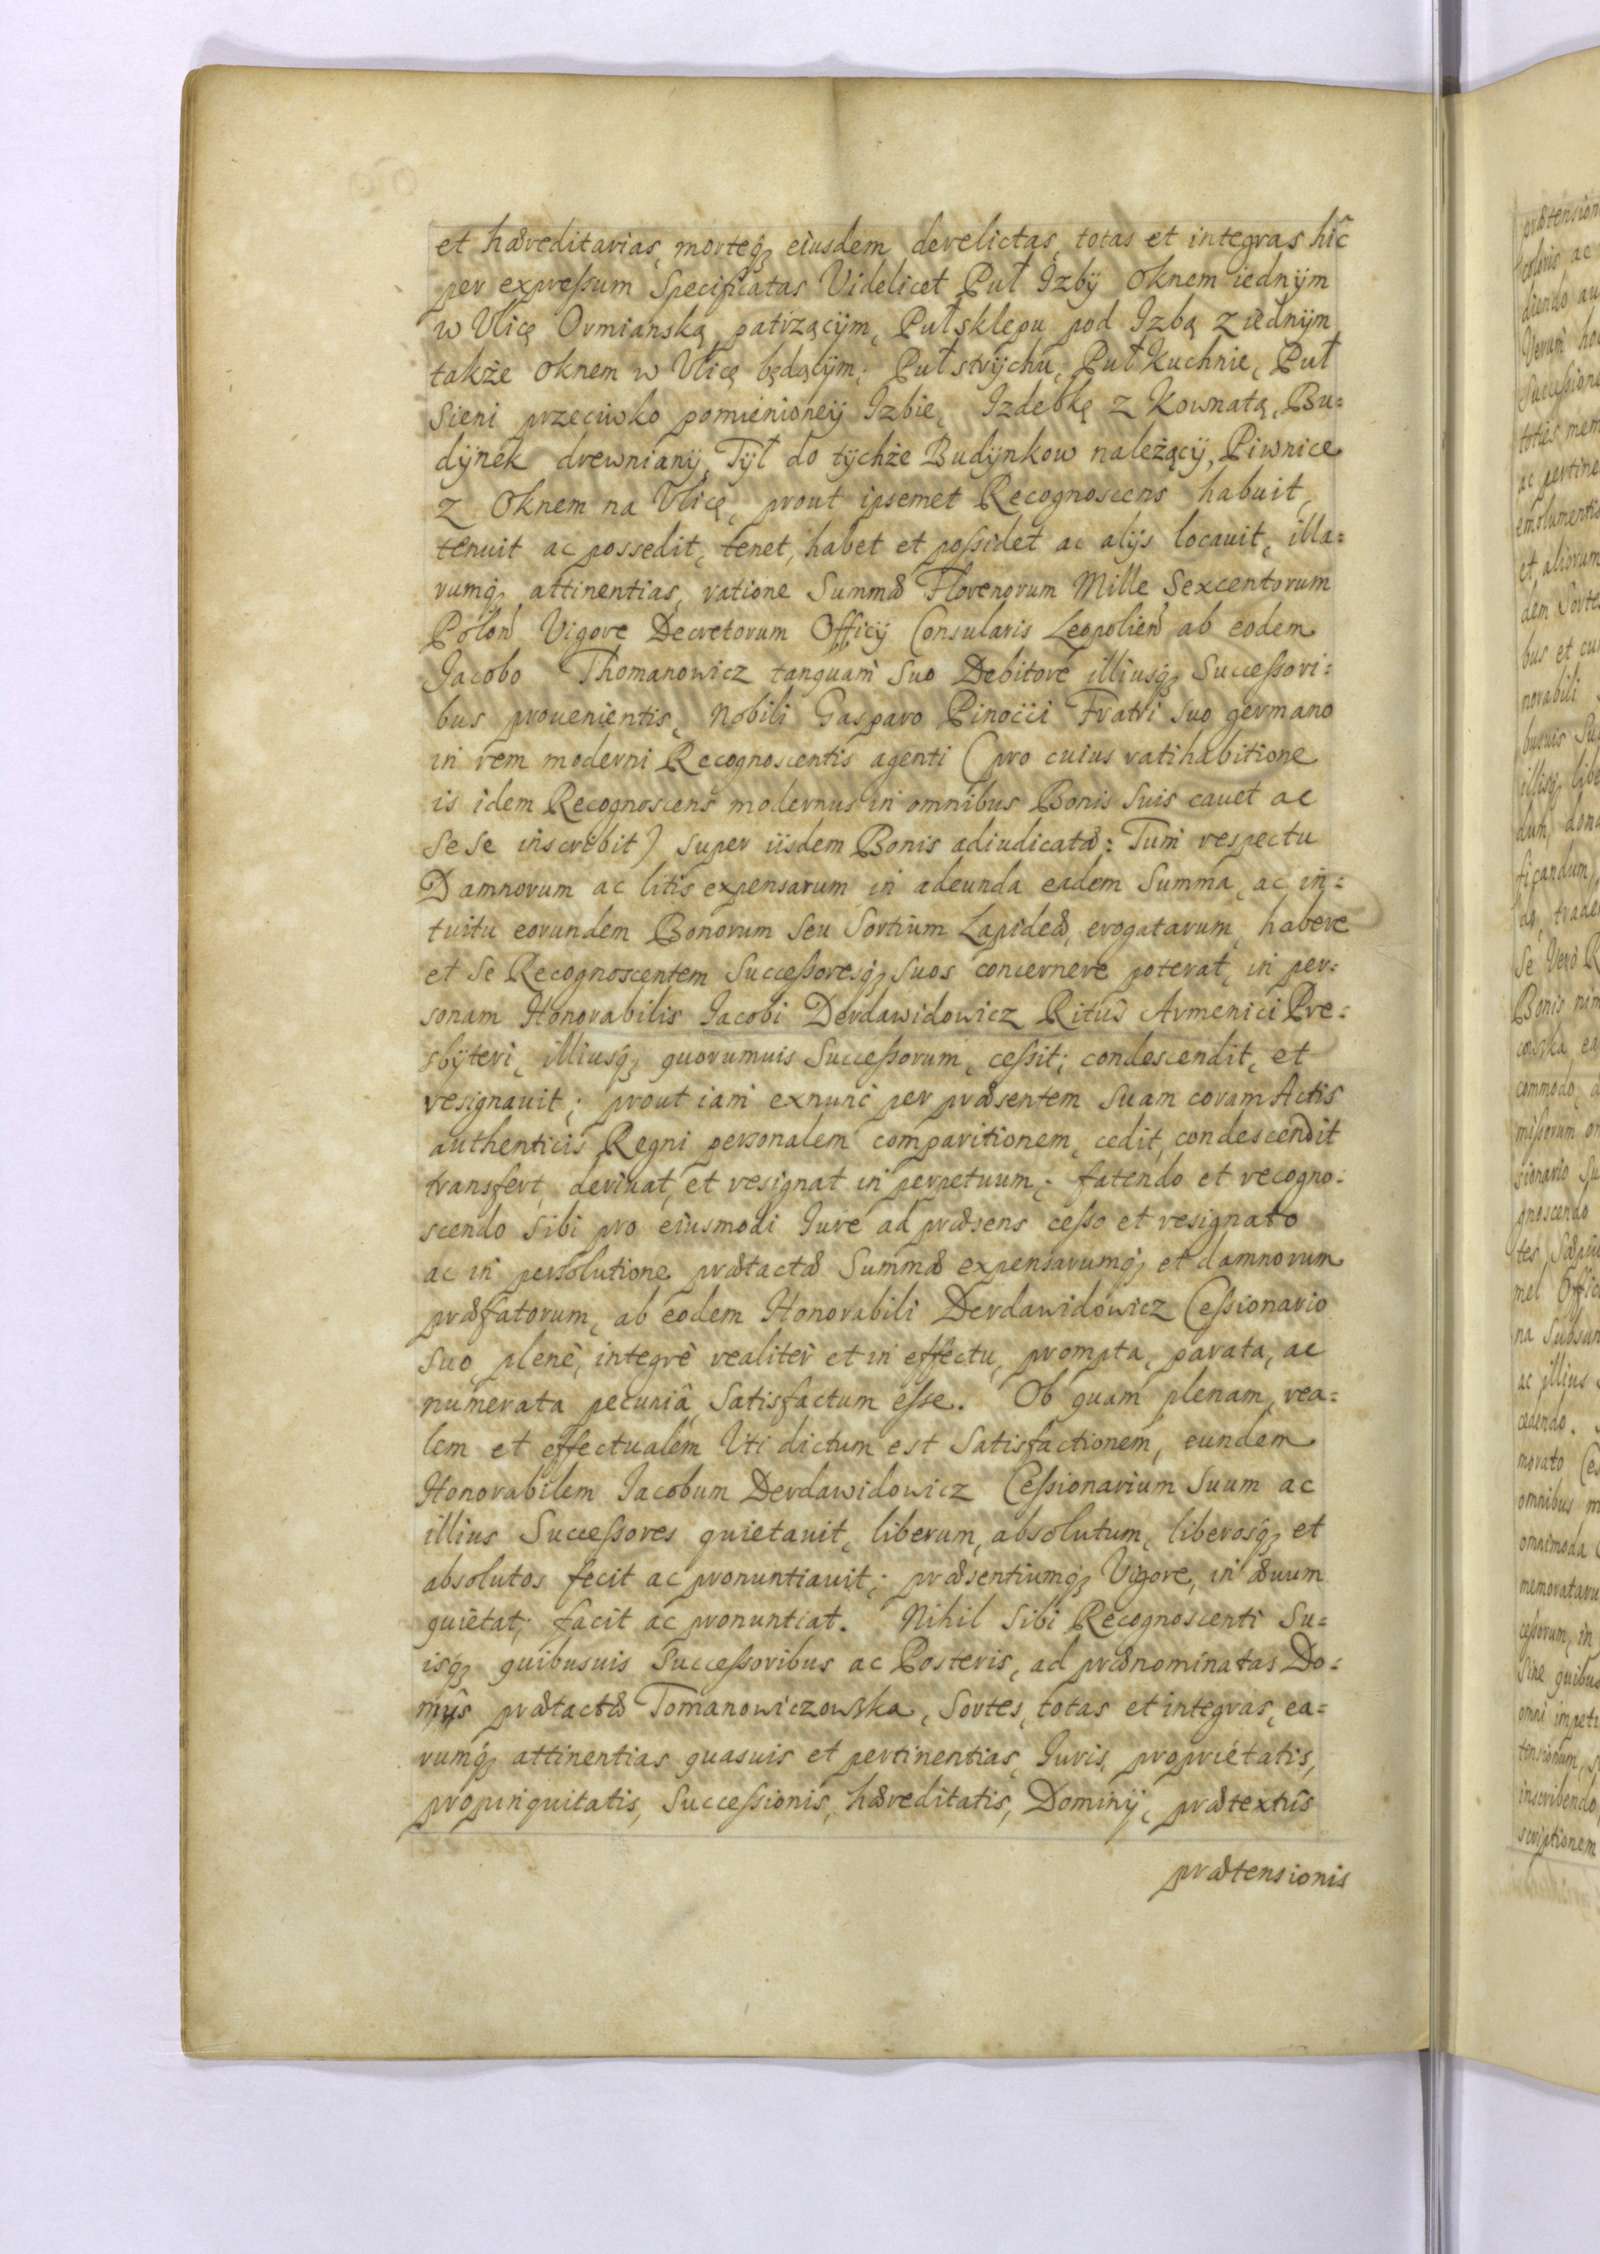 et hæreditarias, morteq́ꝫ eiusdem derelictas, totas et integras hic̃
per expreſsum Specificatas Videlicet Puł Izbÿ Oknem iednÿm
w Vlicę Ormianską patrzącÿm, Puł sklepu pod Izbą z iednÿm
także Oknem w Vlicę będącÿm; Puł strÿchu, Puł Kuchnie, Puł
Sieni przeciwko pomienioneÿ Izbie, Izdebkę z Kownatą, Bu=
dÿnek drewnianÿ, Tÿł do tÿchże Budÿnkow należącÿ, Piwnice
z Oknem na Vlicę, prout ipsemet Recognoscens habuit,
tenuit ac possedit, tenet, habet et poſsidet ac alijs locauit, illa=
rumq́ꝫ attinentias, ratione Summæ Florenorum Mille Sexcentorum
Polon̄ Vigore Decretorum Officÿ Consularis Leopolien̄ ab eodem
Jacobo Thomanowicz tanquam Suo Debitore illiusq́ꝫ Succeſsori=
bus prouenientis, Nobili Gasparo Pinocci Fratri Suo germano
in rem moderni Recognoscentis agenti (pro cuius ratihabitione
is idem Recognoscens modernus in omnibus Bonis Suis cauet ac
Se Se inscribit) super iisdem Bonis adiudicatæ: Tum respectu
Damnorum ac litis expensarum in adeunda eadem Summa, ac in=
tuitu eorundem Bonorum Seu Sortium Lapideæ, erogatarum, habere
et Se Recognoscentem Succeſsoresq́ꝫ Suos concernere poterat, in per=
sonam Honorabilis Jacobi Derdawidowicz Ritus Armenici Pre=
sbÿteri, illiusq́ꝫ quorumuis Succeſsorum, ceſsit; condescendit, et
resignauit; prout iam exnunc per præsentem Suam coram Actis
authenticis Regni personalem comparitionem, cedit, condescendit
transfert, deriuat, et resignat in perpetuum; fatendo et recogno=
scendo Sibi pro eiusmodi Iure ad præsens ceſso et resignato
ac in persolutione prætactæ Summæ expensarumq́ꝫ et damnorum
præfatorum, ab eodem Honorabili Derdawidowicz Ceſsionario
Suo, plenè, integrè realitèr et in effectu, prompta, parata, ac
numerata pecuniâ Satisfactum eſse. Ob quam plenam, rea=
lem et effectualem Uti dictum est Satisfactionem, eundem
Honorabilem Jacobum Derdawidowicz Ceſsionarium Suum ac
illius Succeſsores quietauit, liberum, absolutum, liberosq́ꝫ et
absolutos fecit ac pronuntiauit; præsentiumq́ꝫ Vigore, in æuum
quietat; facit ac pronuntiat. Nihil Sibi Recognoscenti Su=
isq́ꝫ quibusuis Succeſsoribus ac Posteris, ad prænominatas Do=
mûs prætactæ Tomanowiczowska, Sortes, totas et integras, ea=
rumq́ꝫ attinentias quasuis et pertinentias, Juris, proprietatis,
propinquitatis, Succeſsionis, hæreditatis, Dominÿ, prætextûs
prætensionis